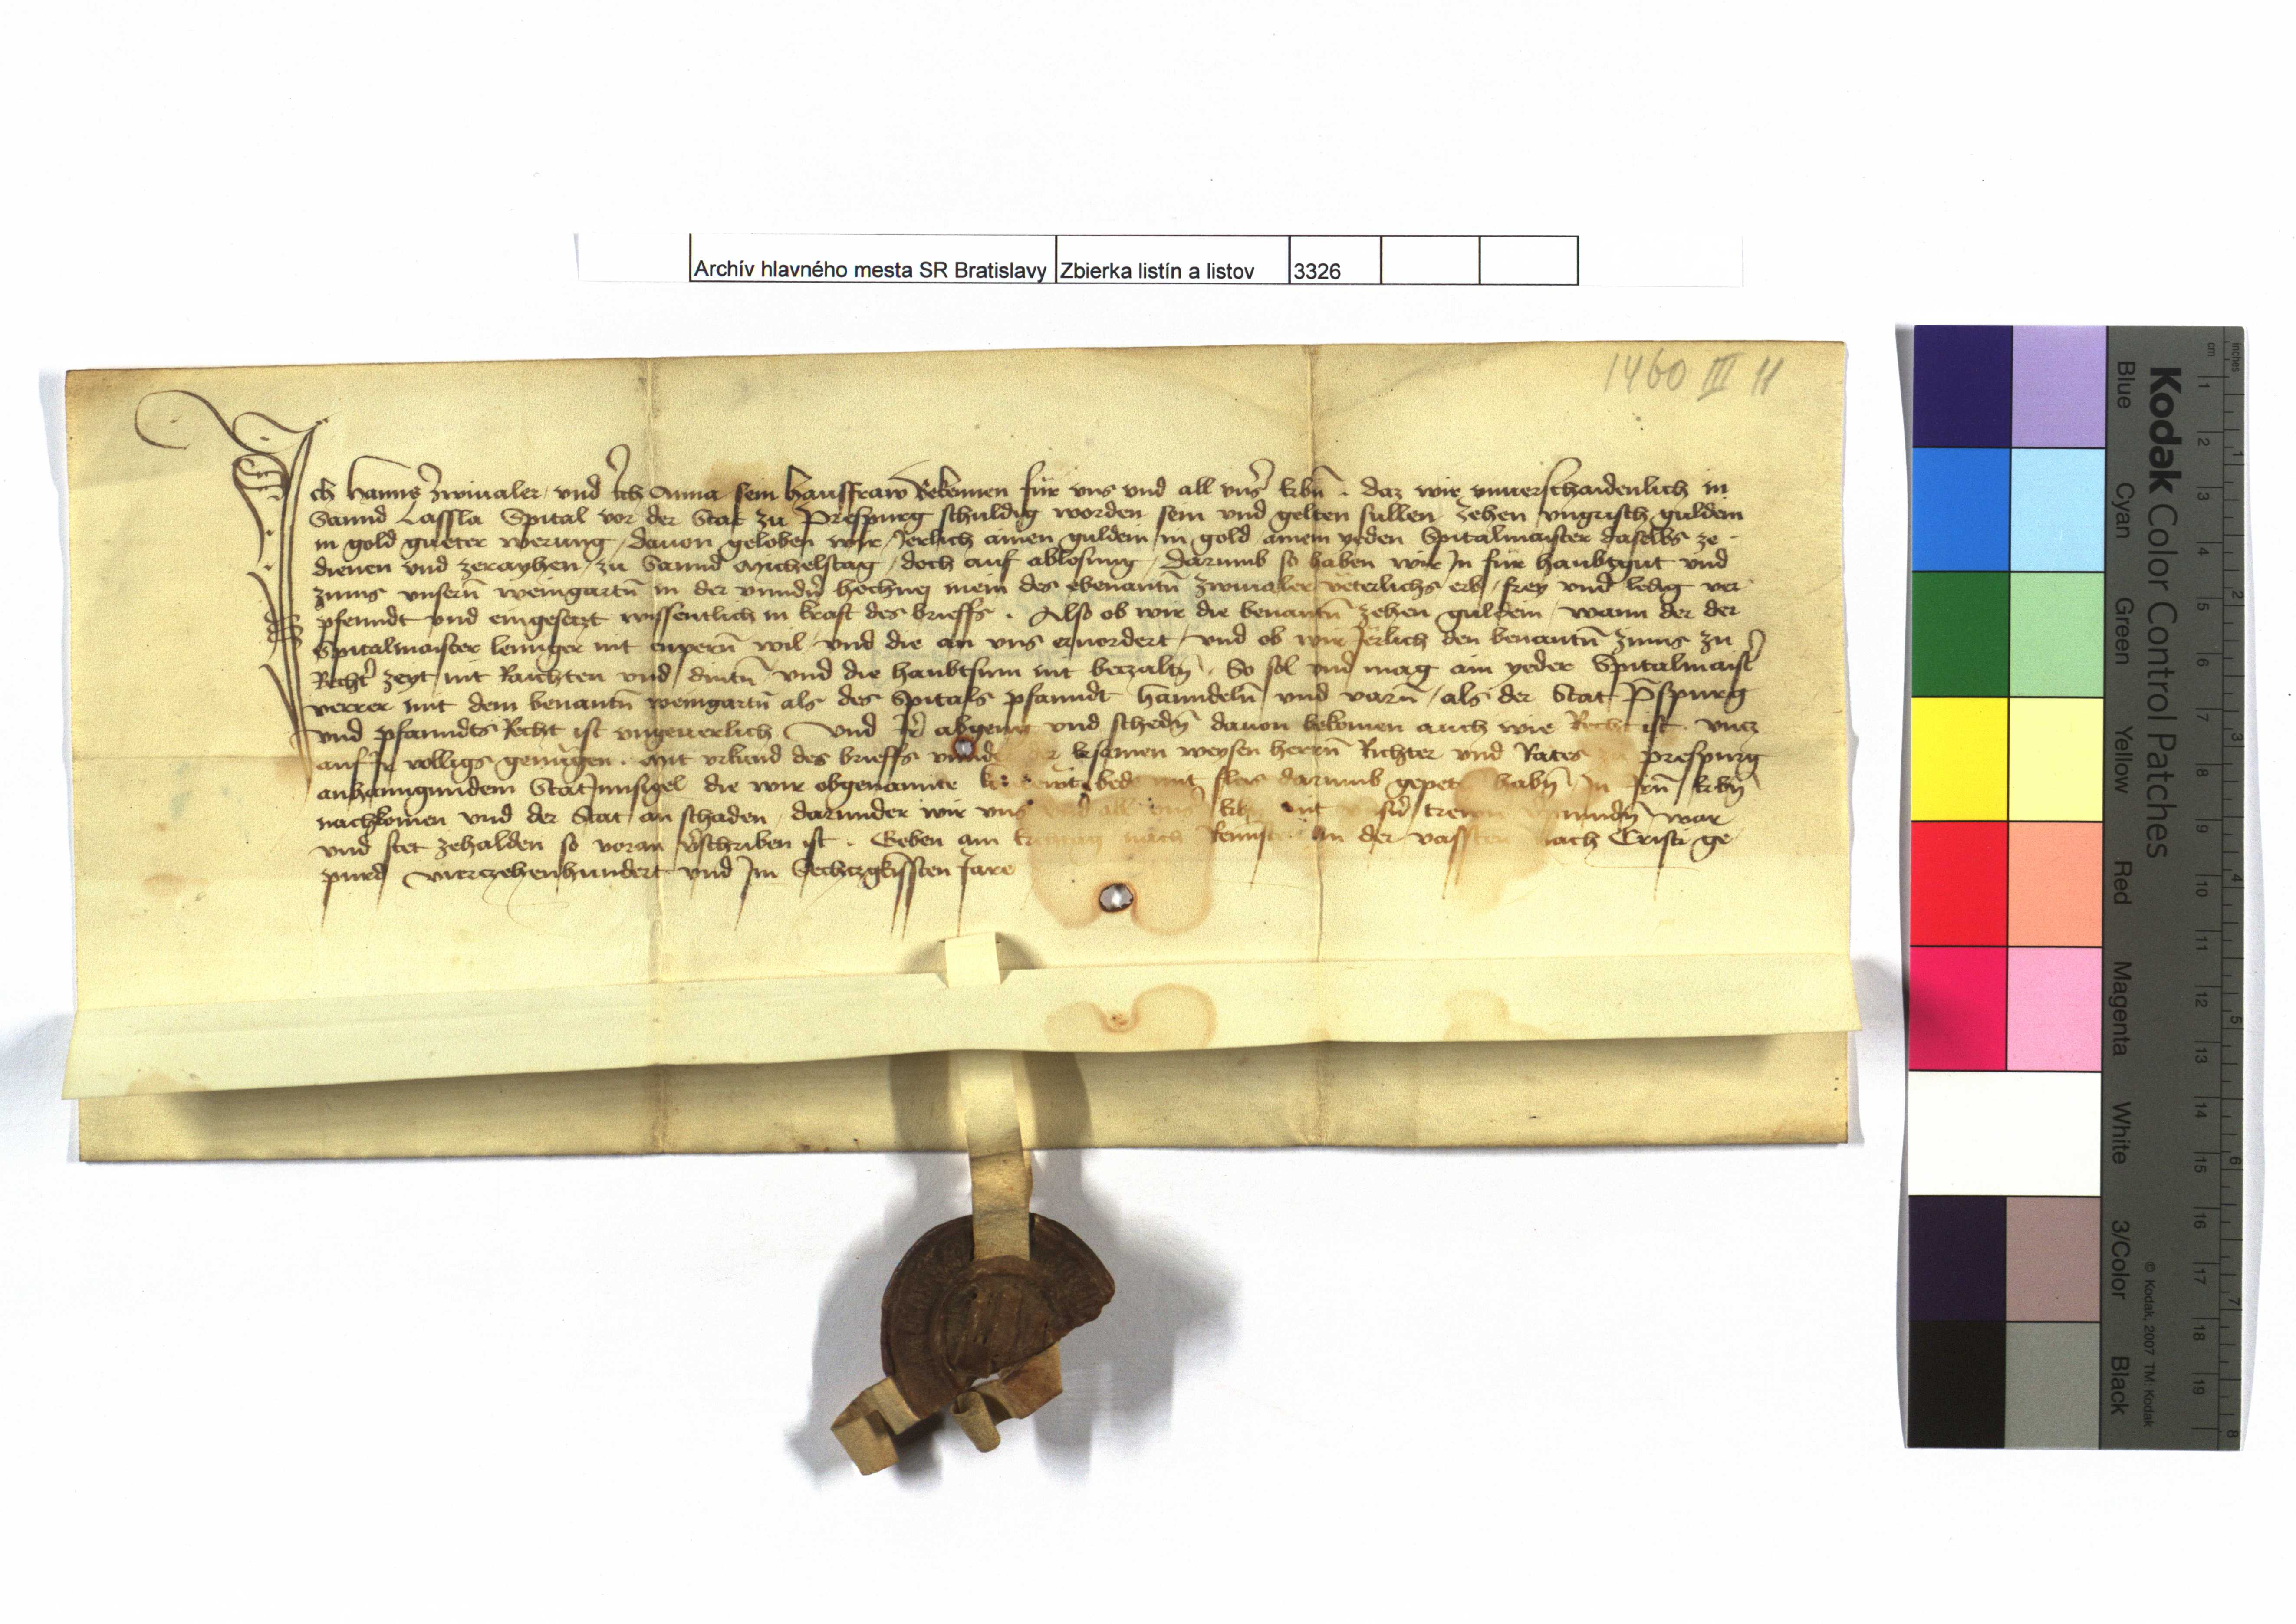 Archív hlavného mesta SR Bratislavy Zbierka listín a listov 3326
1460 III 11
Ich Hanns Zwinaler und Ich Anna sein hausfraw Bekennen für vns vnd all vnsˀ Erbn̄. daz wir vnuerschaidenlich in
Sannd Lassla Spital vor der Stat zu Prespurg schuldig worden sein vnd gelten sullen zehen vngrisch guldein
in gold gueter werung, dauon geloben wir Jerlich ainen guldein in gold ainem yeden Spitalmaister daselbs ze
dienen vnd zeraychen, zu Sannd Michelstag, doch auf ablosung, Darumb so haben wir In für haubtgut vnd
zinns vnsern̄ weingartn̄ in der mein des ebenantn̄ Zwinaler veterlichs erb, frey vnd ledig ver
pfenndt vnd eingesetzt wissentlich in kraft des brieffs. Also ob wir die benantn̄ zehen guldein, wann der der
Spitalmaister lennger nit enpern̄ wil vnd die an vns eruordert, vnd ob wir Jerlich den benantn̄ zinns zu
Rechtˀ zeyt nit Raichten vnd dintn̄ vnd die haubtsum nit betzaltn̄. So sol vnd mag ain yeder Spitalmaistˀ
verrer mit dem benantn̄ weingartn̄ als des Spitals pfanndt hanndeln̄ vnd varn̄, als der Stat P̄spurg
vnd pfanndts Recht ist vngeuerlich Vnd Irˀ abgeng vnd schedn̄ dauon bekomen auch wie Recht ist. vntz
auf Ir volligs genugen. Mit vrkund des brieffs ersamen weysen herrn̄ Richter vnd Rates zu Prespurg
anhanngundem Stat Innsigel die wir obgenannte bede mit fleis darumb gepeten habn̄ In Irn̄ Erbn̄
nachkomen vnd der Stat an schaden, darunder wir vns vnd all vnsˀ Erbn̄ mit trewn war
vnd stet zehalden so voran v̄schriben ist. Geben am nach Reminiscere In der vassten nach Cristi ge
purd vierczehenhundert vnd Im Sechczgkissten Jare
Kodak Color Control Patches
Blue Cyan Green Yellow Red Magenta White 3/Color Black
© Kodak, 2007 TM: Kodak
cm 1 2 3 4 5 6 7 8 9 10 11 12 13 14 15 16 17 18 19
inches 1 2 3 4 5 6 7 8